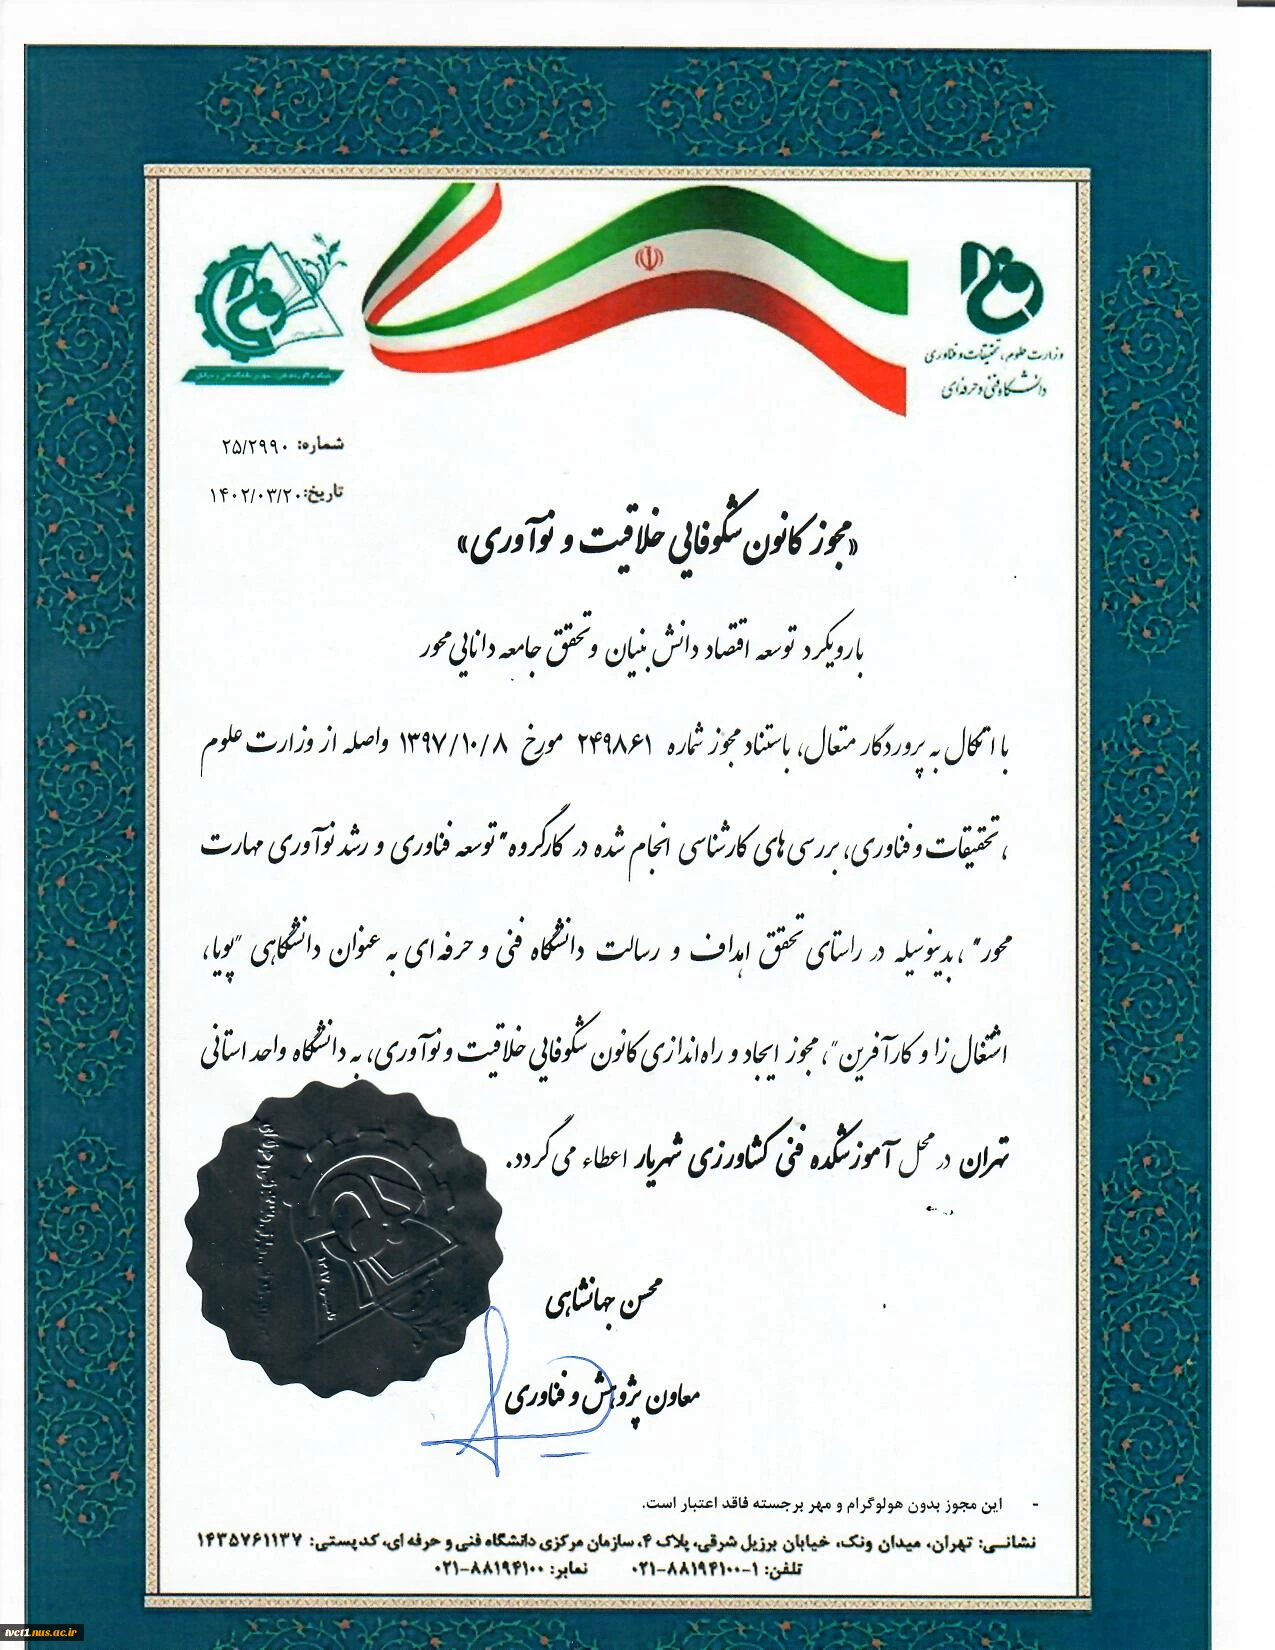 وزارت علوم، تحقیقات و فناوری
دانشگاه فنی و حرفه‌ای
شماره: ۲۵/۲۹۹۰
تاریخ: ۱۴۰۲/۰۳/۲۰
«مجوز کانون شکوفایی خلاقیت و نوآوری»
با رویکرد توسعه اقتصاد دانش بنیان و تحقق جامعه دانایی محور
با اتکال به پروردگار متعال، باستناد مجوز شماره ۲۴۹۸۶۱ مورخ ۱۳۹۷/۱۰/۸ واصله از وزارت علوم
، تحقیقات و فناوری، بررسی‌های کارشناسی انجام شده در کارگروه "توسعه فناوری و رشد نوآوری مهارت
محور"، بدینوسیله در راستای تحقق اهداف و رسالت دانشگاه فنی و حرفه ای به عنوان دانشگاهی "پویا،
اشتغال زا و کارآفرین"، مجوز ایجاد و راه‌اندازی کانون شکوفایی خلاقیت و نوآوری، به دانشگاه واحد استانی
تهران در محل آموزشکده فنی کشاورزی شهریار اعطاء می گردد.
محسن جهانشاهی
معاون پژوهش و فناوری
- این مجوز بدون هولوگرام و مهر برجسته فاقد اعتبار است.
نشانی: تهران، میدان ونک، خیابان برزیل شرقی، پلاک ۴، سازمان مرکزی دانشگاه فنی و حرفه ای، کدپستی: ۱۴۳۵۷۶۱۱۳۷
تلفن: ۱-۸۸۱۹۴۱۰۰-۰۲۱ نمابر: ۸۸۱۹۴۱۰۰-۰۲۱
tvct1.nus.ac.ir